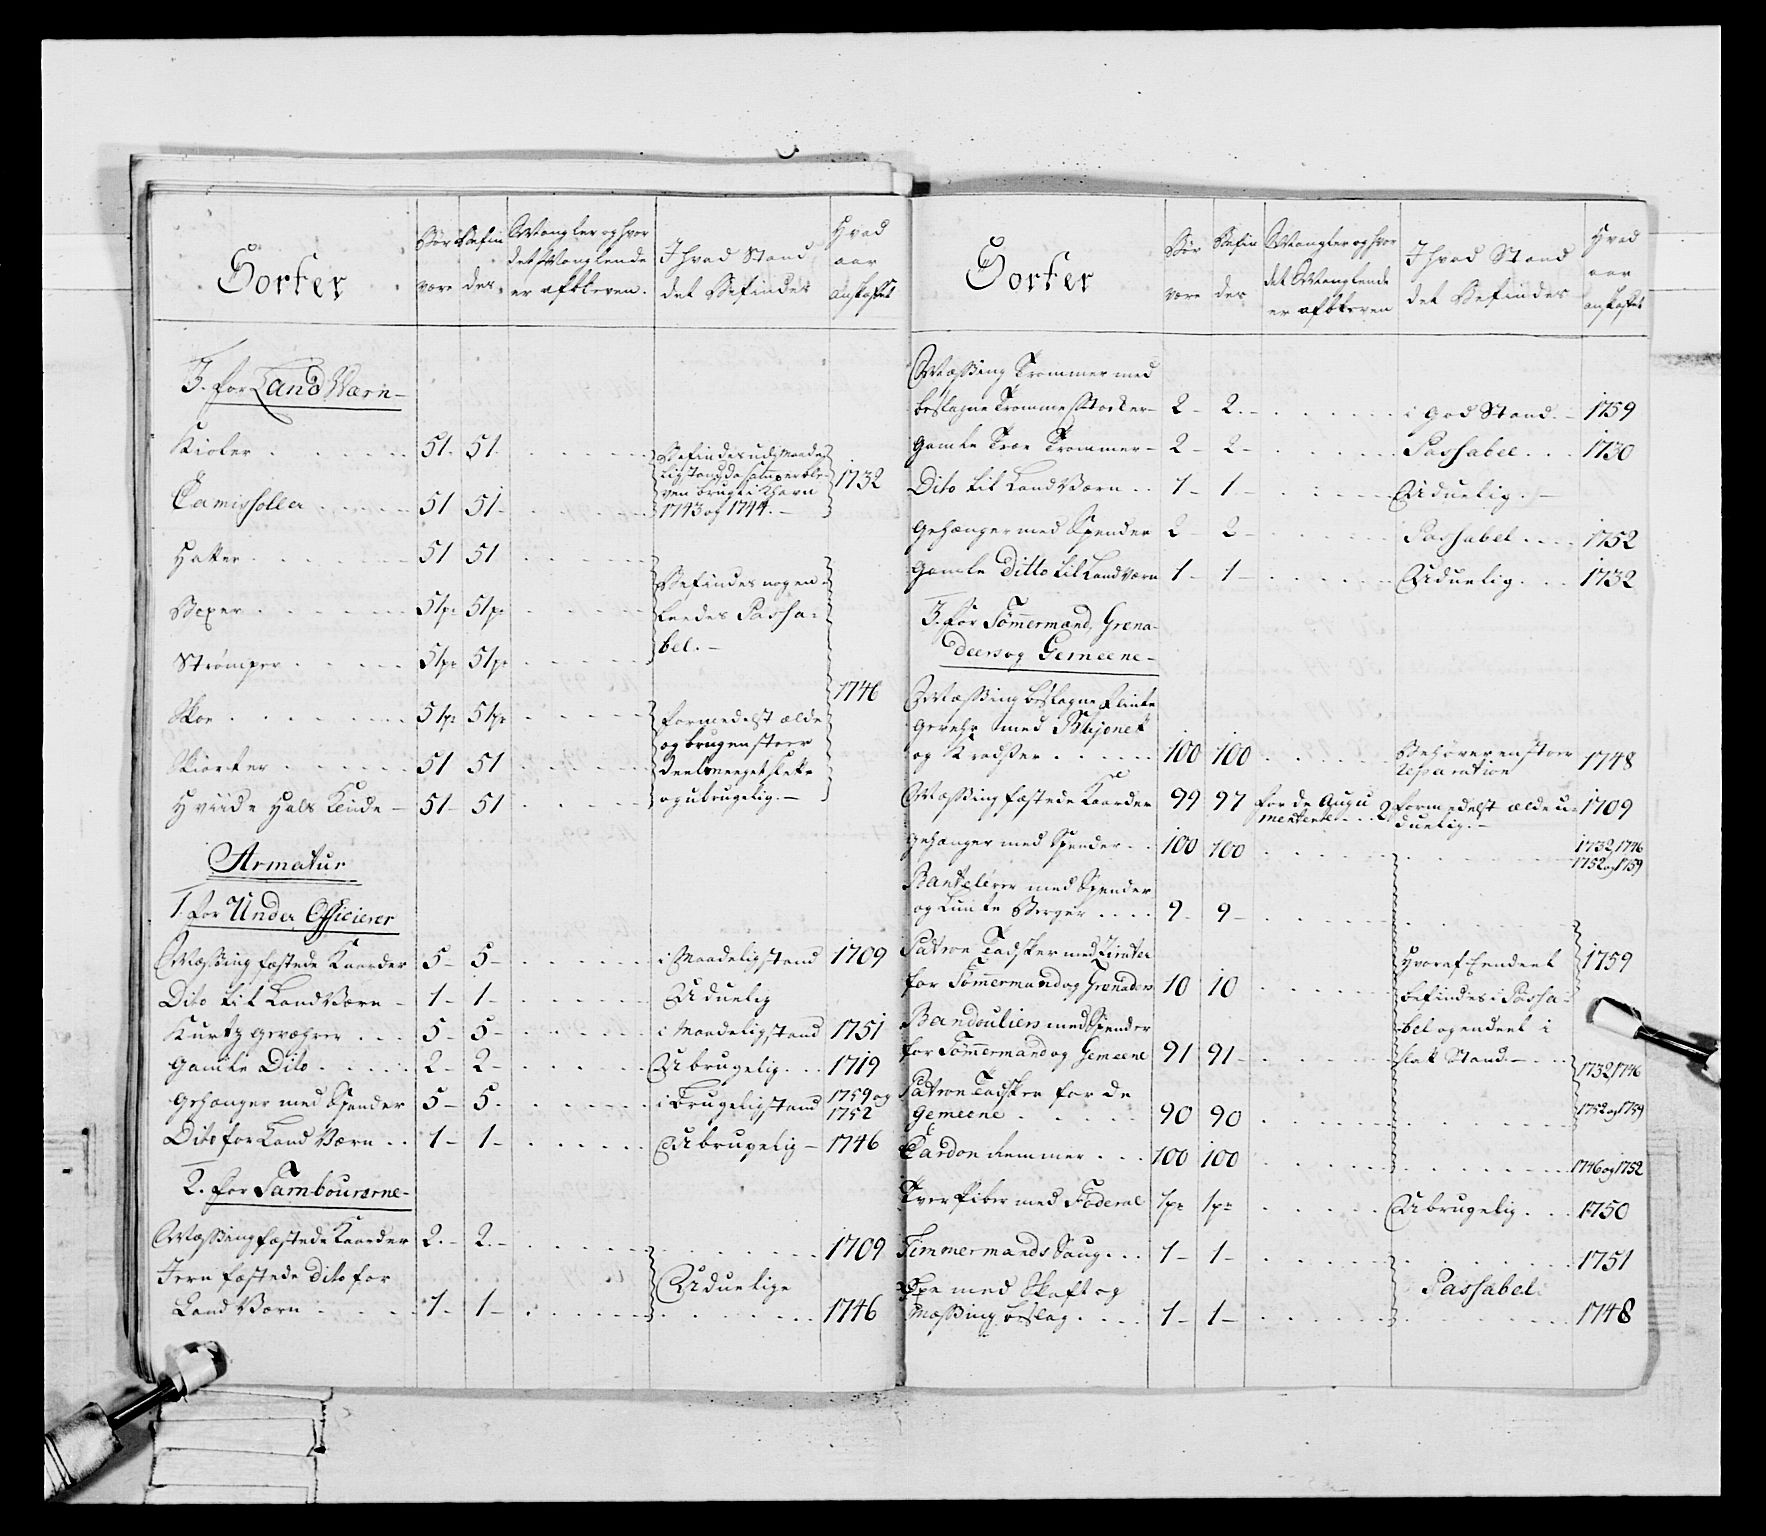 Sorter
Bør være
Befindes
Mangler og hvor det Manglende er afbleven.
I hvad Stand det Befindes
Hvad aar anskaffet
3. for Land Værn
Kioler 51. 51.
Befindes udj Maade-
lig stand, da saa
ven brugt i Khavn
1743 og 1744.
1732
Camisholler 51 51
Hatter 51 51
Befindes nogen-
Buxer 51pr 51pr
leedes Passa-
bel.
Strømper 51pr 51pr
1746
Skoe 51pr 51pr
formedelst ælde
og brugen stoer
Deel meeget slette
og ubrugelig.
Skiorter 51 51
Hviide Hals Klude 51 51
Armatur
1. for Under Officierer
Mæssing fæstede Kaarder 5 5 i Maadelig stand 1709
Dito til Land Værn 1 1 Uduelig
Kurtz Geværer 5 5 i Maadelig stand 1751
Gamle Dito 2 2 Ubrugelig 1719
Gehænger med Spender 5 5 i brugelig stand 1759 og
1752
Dito for Land Værn 1 1 Ubrugelig 1746
2. for Tambourerne
Mæssing fæstede Kaarder 2. 2. 1709
Jern fæstede dito for
Uduelige
Land Værn 1 1 1746
Sorter
Bør være
Befindes
Mangler og hvor det Manglende er afbleven
I hvad Stand det Befindes
Hvad aar anskaffet
Mæssing Trommer med
beslagne Tromme Stocker 2 2. i God Stand. 1759
Gamle Træe Trommer 2 2 Passabel 1730
Dito til Land Værn 1 1 Uduelig.
Gehænger med Spender 2 2 Passabel 1752
Gamle Ditto til Land Værn 1 1 Uduelig. 1732
3. for Tømmermænd, Grena-
deers og Gemeene
Mæssing beslagne Flinte
Gevehr med Bajonet
og Kradser 100 100 Behøver en stoer
Reparation 1748
Mæssing fæstede Kaarder 99 97 for de Augu
menterte 2 formedelst ælde u-
duelig. 1709
Gehænger med Spender 100 100 1732, 1746
1752 og 1759
Banteleerer med Spender
og Lunte Berger 9. 9
Patron Tadsker med Zirater
for Tømmermand og Grenadeers 10 10
Hvoraf Eendeel
befindes i Passa-
bel og endeel i
slet Stand.
1759
Bandouliers med Spender
for Tømmermand og Gemeene 91 91 1732, 1746
Patron Tadsker for de
Gemeene 90 90 1752 og 1759
Cardon Remmer 100 100 1746 og 1752
Tver Piber med Foderal 1pr 1pr Ubrugelig. 1750
Timmermands Saug 1 1 1751
Øxe med Skaft og
Passabel
Mæssing beslag 1 1 1748